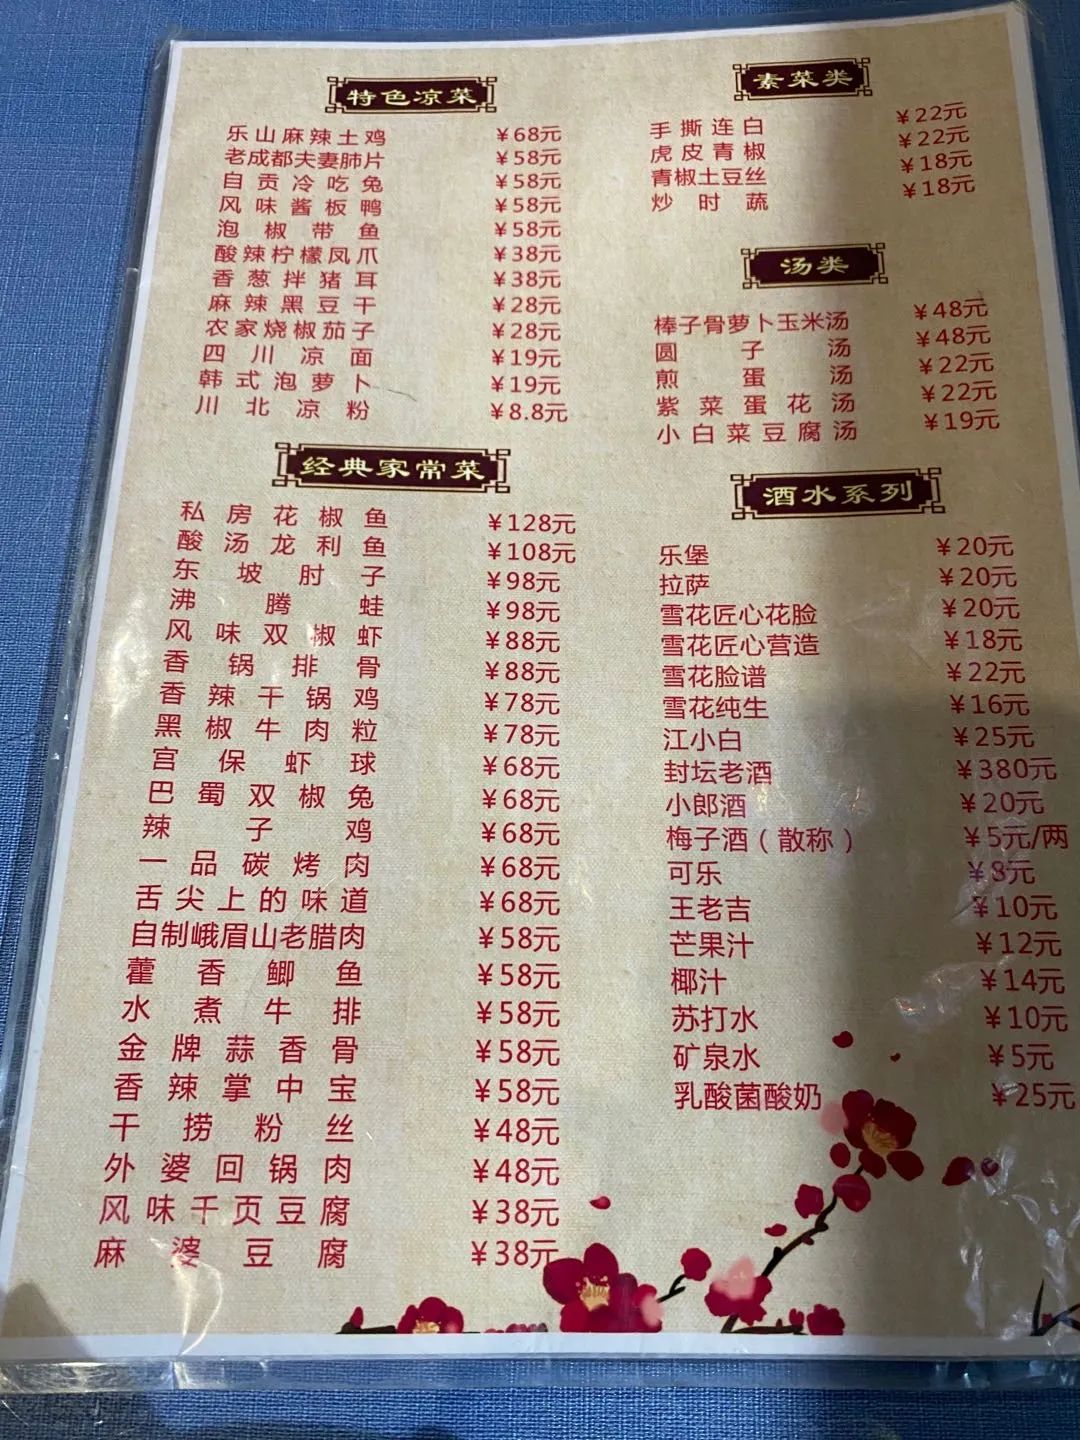 特色凉菜
乐山麻辣土鸡 ¥68元
老成都夫妻肺片 ¥58元
自贡冷吃兔 ¥58元
风味酱板鸭 ¥58元
泡椒带鱼 ¥58元
酸辣柠檬凤爪 ¥38元
香葱拌猪耳 ¥38元
麻辣黑豆干 ¥28元
农家烧椒茄子 ¥28元
四川凉面 ¥19元
韩式泡萝卜 ¥19元
川北凉粉 ¥8.8元
经典家常菜
私房花椒鱼 ¥128元
酸汤龙利鱼 ¥108元
东坡肘子 ¥98元
沸腾蛙 ¥98元
风味双椒虾 ¥88元
香锅排骨 ¥88元
香辣干锅鸡 ¥78元
黑椒牛肉粒 ¥78元
宫保虾球 ¥68元
巴蜀双椒兔 ¥68元
辣子鸡 ¥68元
一品碳烤肉 ¥68元
舌尖上的味道 ¥68元
自制峨眉山老腊肉 ¥58元
藿香鲫鱼 ¥58元
水煮牛排 ¥58元
金牌蒜香骨 ¥58元
香辣掌中宝 ¥58元
干捞粉丝 ¥48元
外婆回锅肉 ¥48元
风味千页豆腐 ¥38元
麻婆豆腐 ¥38元
素菜类
手撕连白 ¥22元
虎皮青椒 ¥22元
青椒土豆丝 ¥18元
炒时蔬 ¥18元
汤类
棒子骨萝卜玉米汤 ¥48元
圆子汤 ¥48元
煎蛋汤 ¥22元
紫菜蛋花汤 ¥22元
小白菜豆腐汤 ¥19元
酒水系列
乐堡 ¥20元
拉萨 ¥20元
雪花匠心花脸 ¥20元
雪花匠心营造 ¥18元
雪花脸谱 ¥22元
雪花纯生 ¥16元
江小白 ¥25元
封坛老酒 ¥380元
小郎酒 ¥20元
梅子酒（散称） ¥5元/两
可乐 ¥8元
王老吉 ¥10元
芒果汁 ¥12元
椰汁 ¥14元
苏打水 ¥10元
矿泉水 ¥5元
乳酸菌酸奶 ¥25元